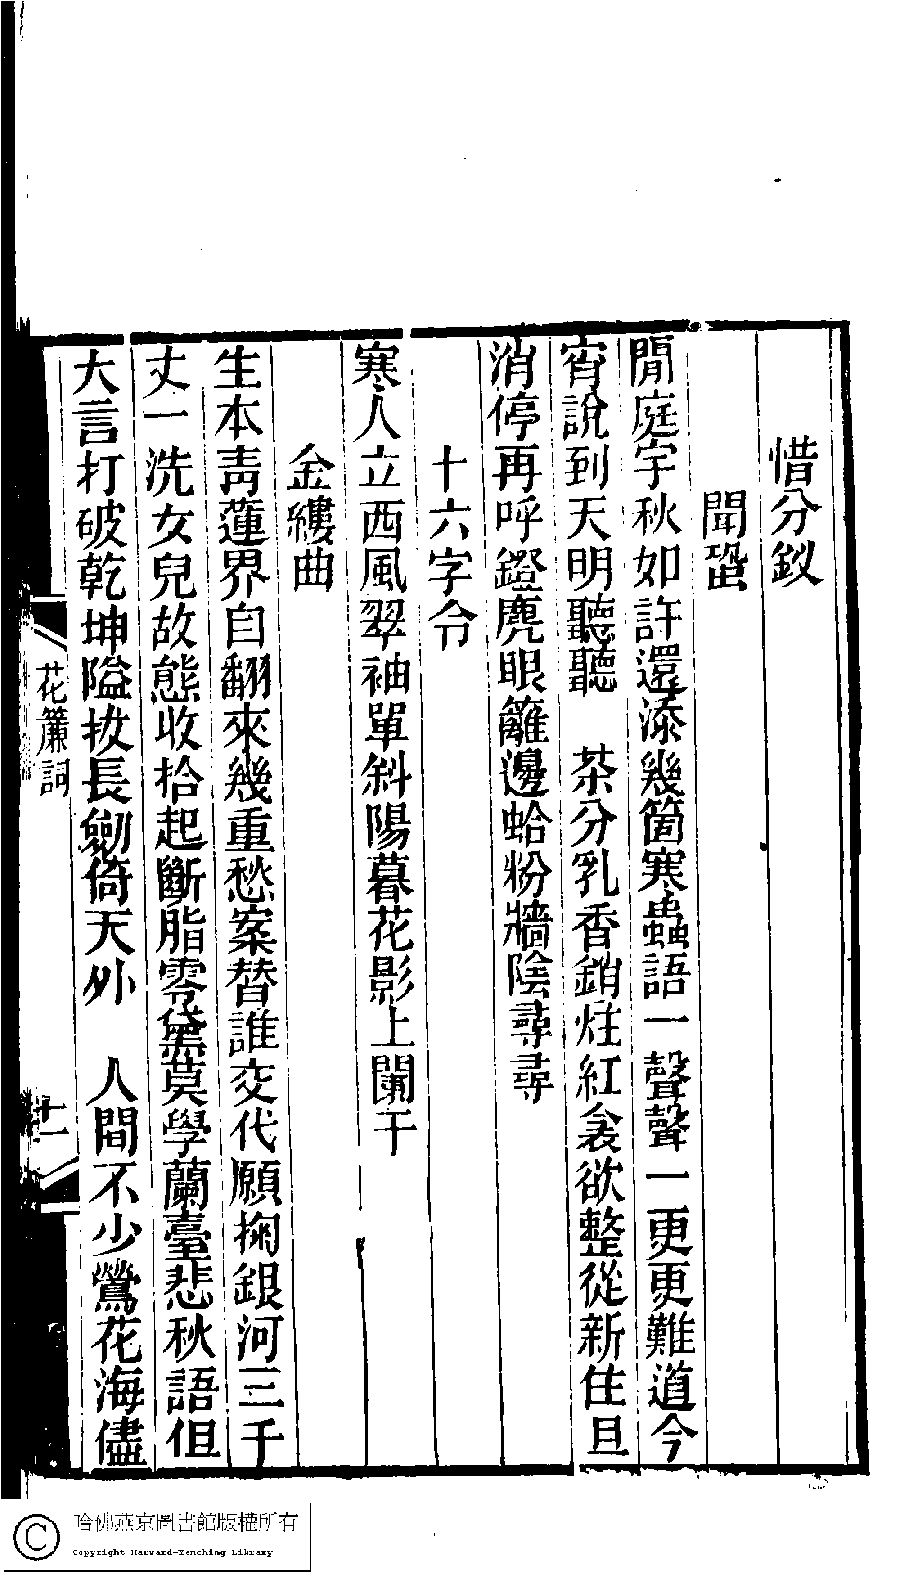 惜分釵
聞蛩
閒庭宇秋如許還添幾箇寒蟲語一聲聲一更更難道今
宵說到天明聽聽　茶分乳香銷炷紅衾欲整從新住且
消停再呼鐙麂眼籬邊蛤粉牆陰尋尋
十六字令
寒人立西風翠袖單斜陽暮花影上闌干
金縷曲
生本青蓮界自翻來幾重愁案替誰交代願掬銀河三千
丈一洗女兒故態收拾起斷脂零黛莫學蘭臺悲秋語但
大言打破乾坤隘拔長劒倚天外　人間不少鶯花海儘
花簾詞
十一
哈佛燕京圖書館版權所有
Copyright Harvard-Yenching Library